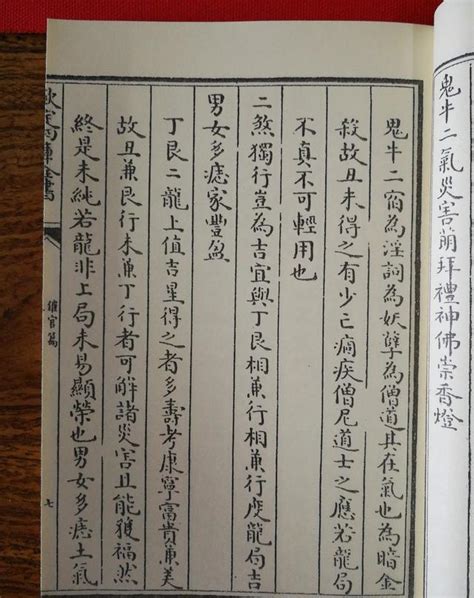 鬼牛二氣災害萠拜禮神佛崇香燈
鬼牛二宿為淫詞為妖孽為僧道其在氣也為暗金
殺故丑未得之有少亡痼疾僧尼道士之應若龍局
不真不可輕用也
二煞獨行豈為吉宜與丁艮相兼行相兼行度龍局吉
男女多痣家豐盈
丁艮二龍上值吉星得之者多壽考康寧富貴兼美
故丑兼艮行未兼丁行者可解諸災害且能獲福然
終是未純若龍非上局未易顯榮也男女多痣土氣
欽定四庫全書
催官篇
七